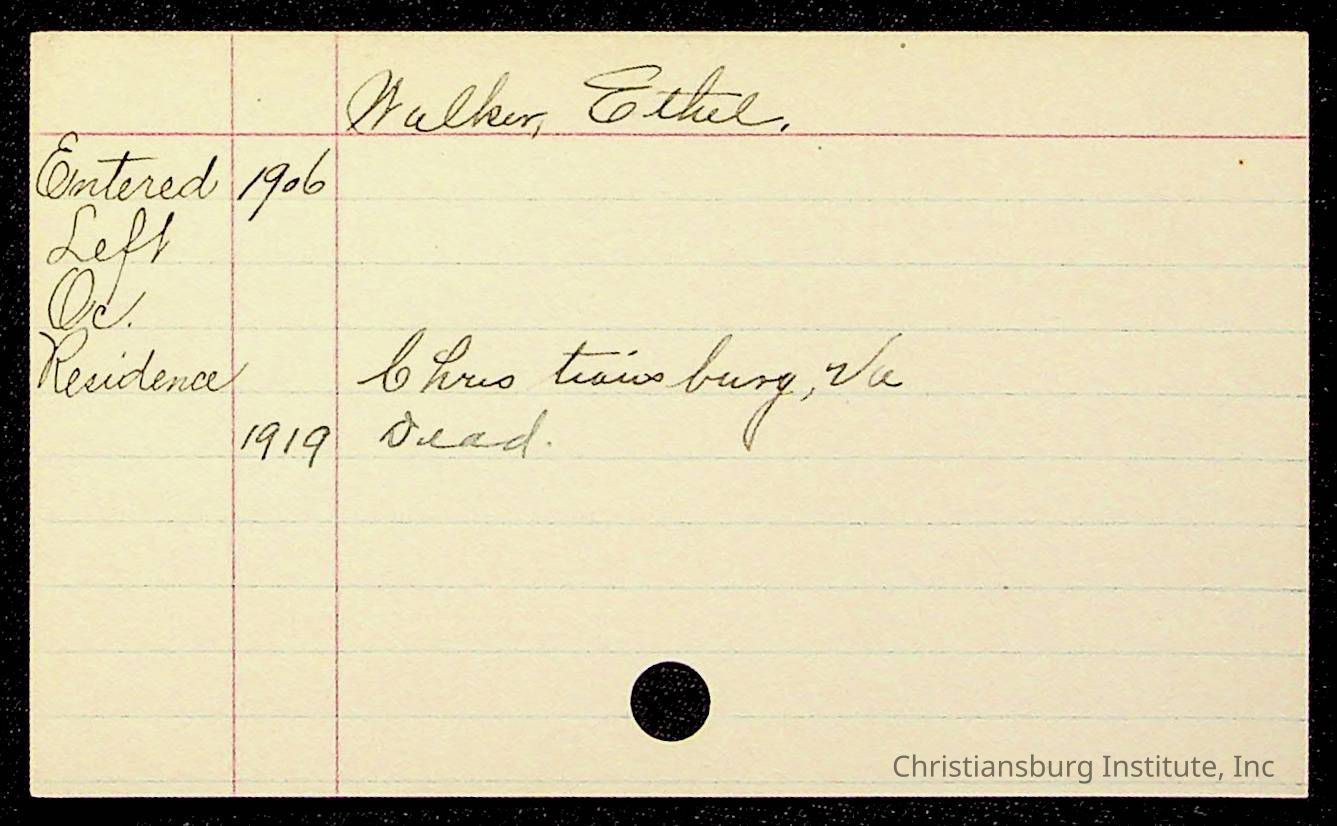 Walker, Ethel.
Entered 1906
Left
Oc.
Residence Christiansburg, Va
1919 Dead.
Christiansburg Institute, Inc